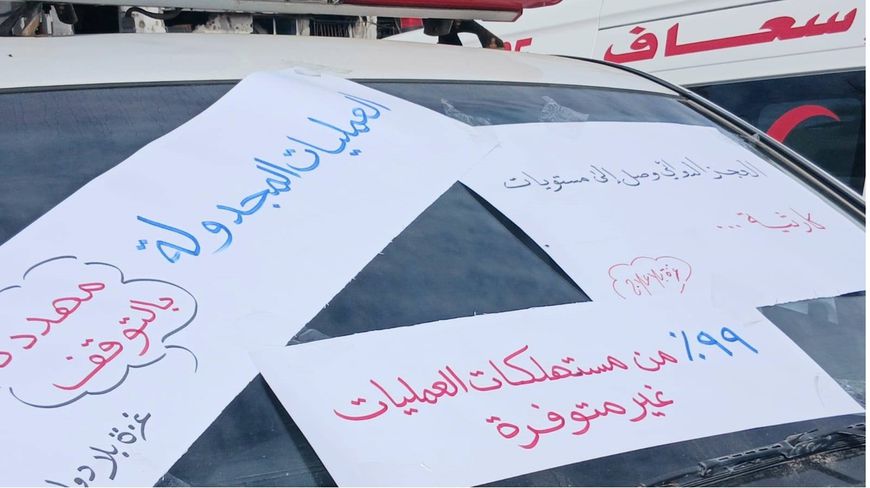 سعاف
العمليات المجدولة
مهددة
بالتوقف
غزة بلا دوا
العجز الدوائي وصل إلى مستويات
كارثية...
غزة بلا علاج
٩٩٪ من مستهلكات العمليات
غير متوفرة